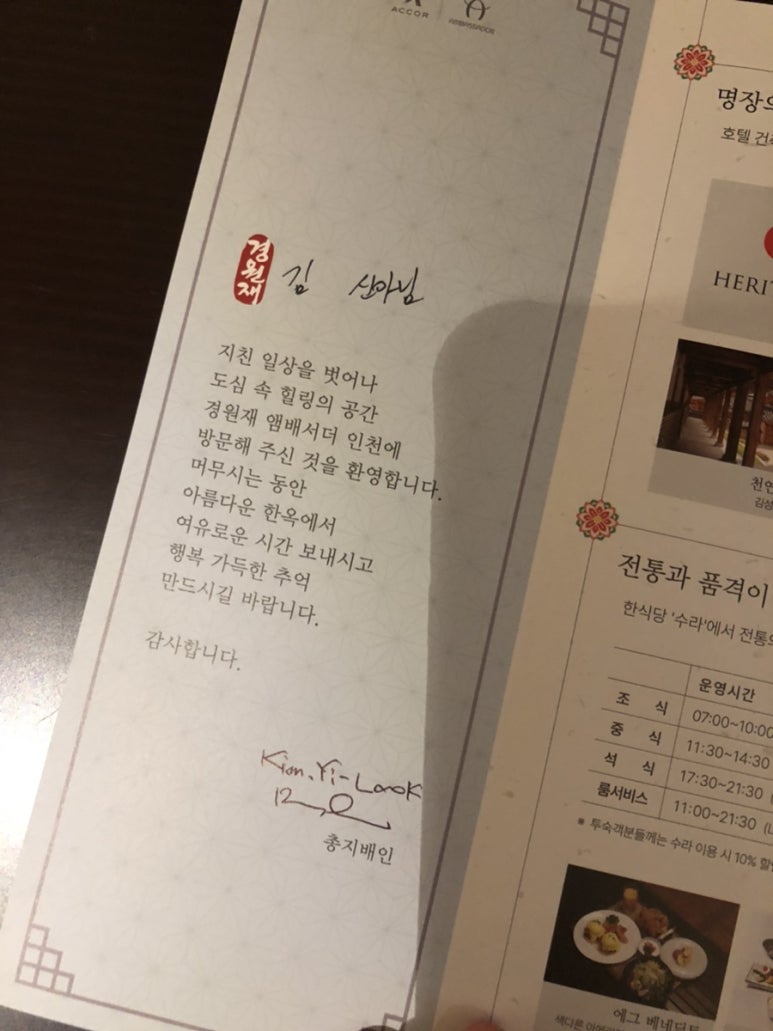 ACCOR
AMBASSADOR
경원재
김 신아님
지친 일상을 벗어나
도심 속 힐링의 공간
경원재 앰배서더 인천에
방문해 주신 것을 환영합니다.
머무시는 동안
아름다운 한옥에서
여유로운 시간 보내시고
행복 가득한 추억
만드시길 바랍니다.
감사합니다.
Kim. Yi-Look
총지배인
명장의
호텔 건축
HERIT
천연
김성
전통과 품격이
한식당 '수라'에서 전통의
운영시간
조 식 07:00~10:00
중 식 11:30~14:30
석 식 17:30~21:30
룸서비스 11:00~21:30 (L
※ 투숙객분들께는 수라 이용 시 10% 할인
에그 베네딕트
색다른